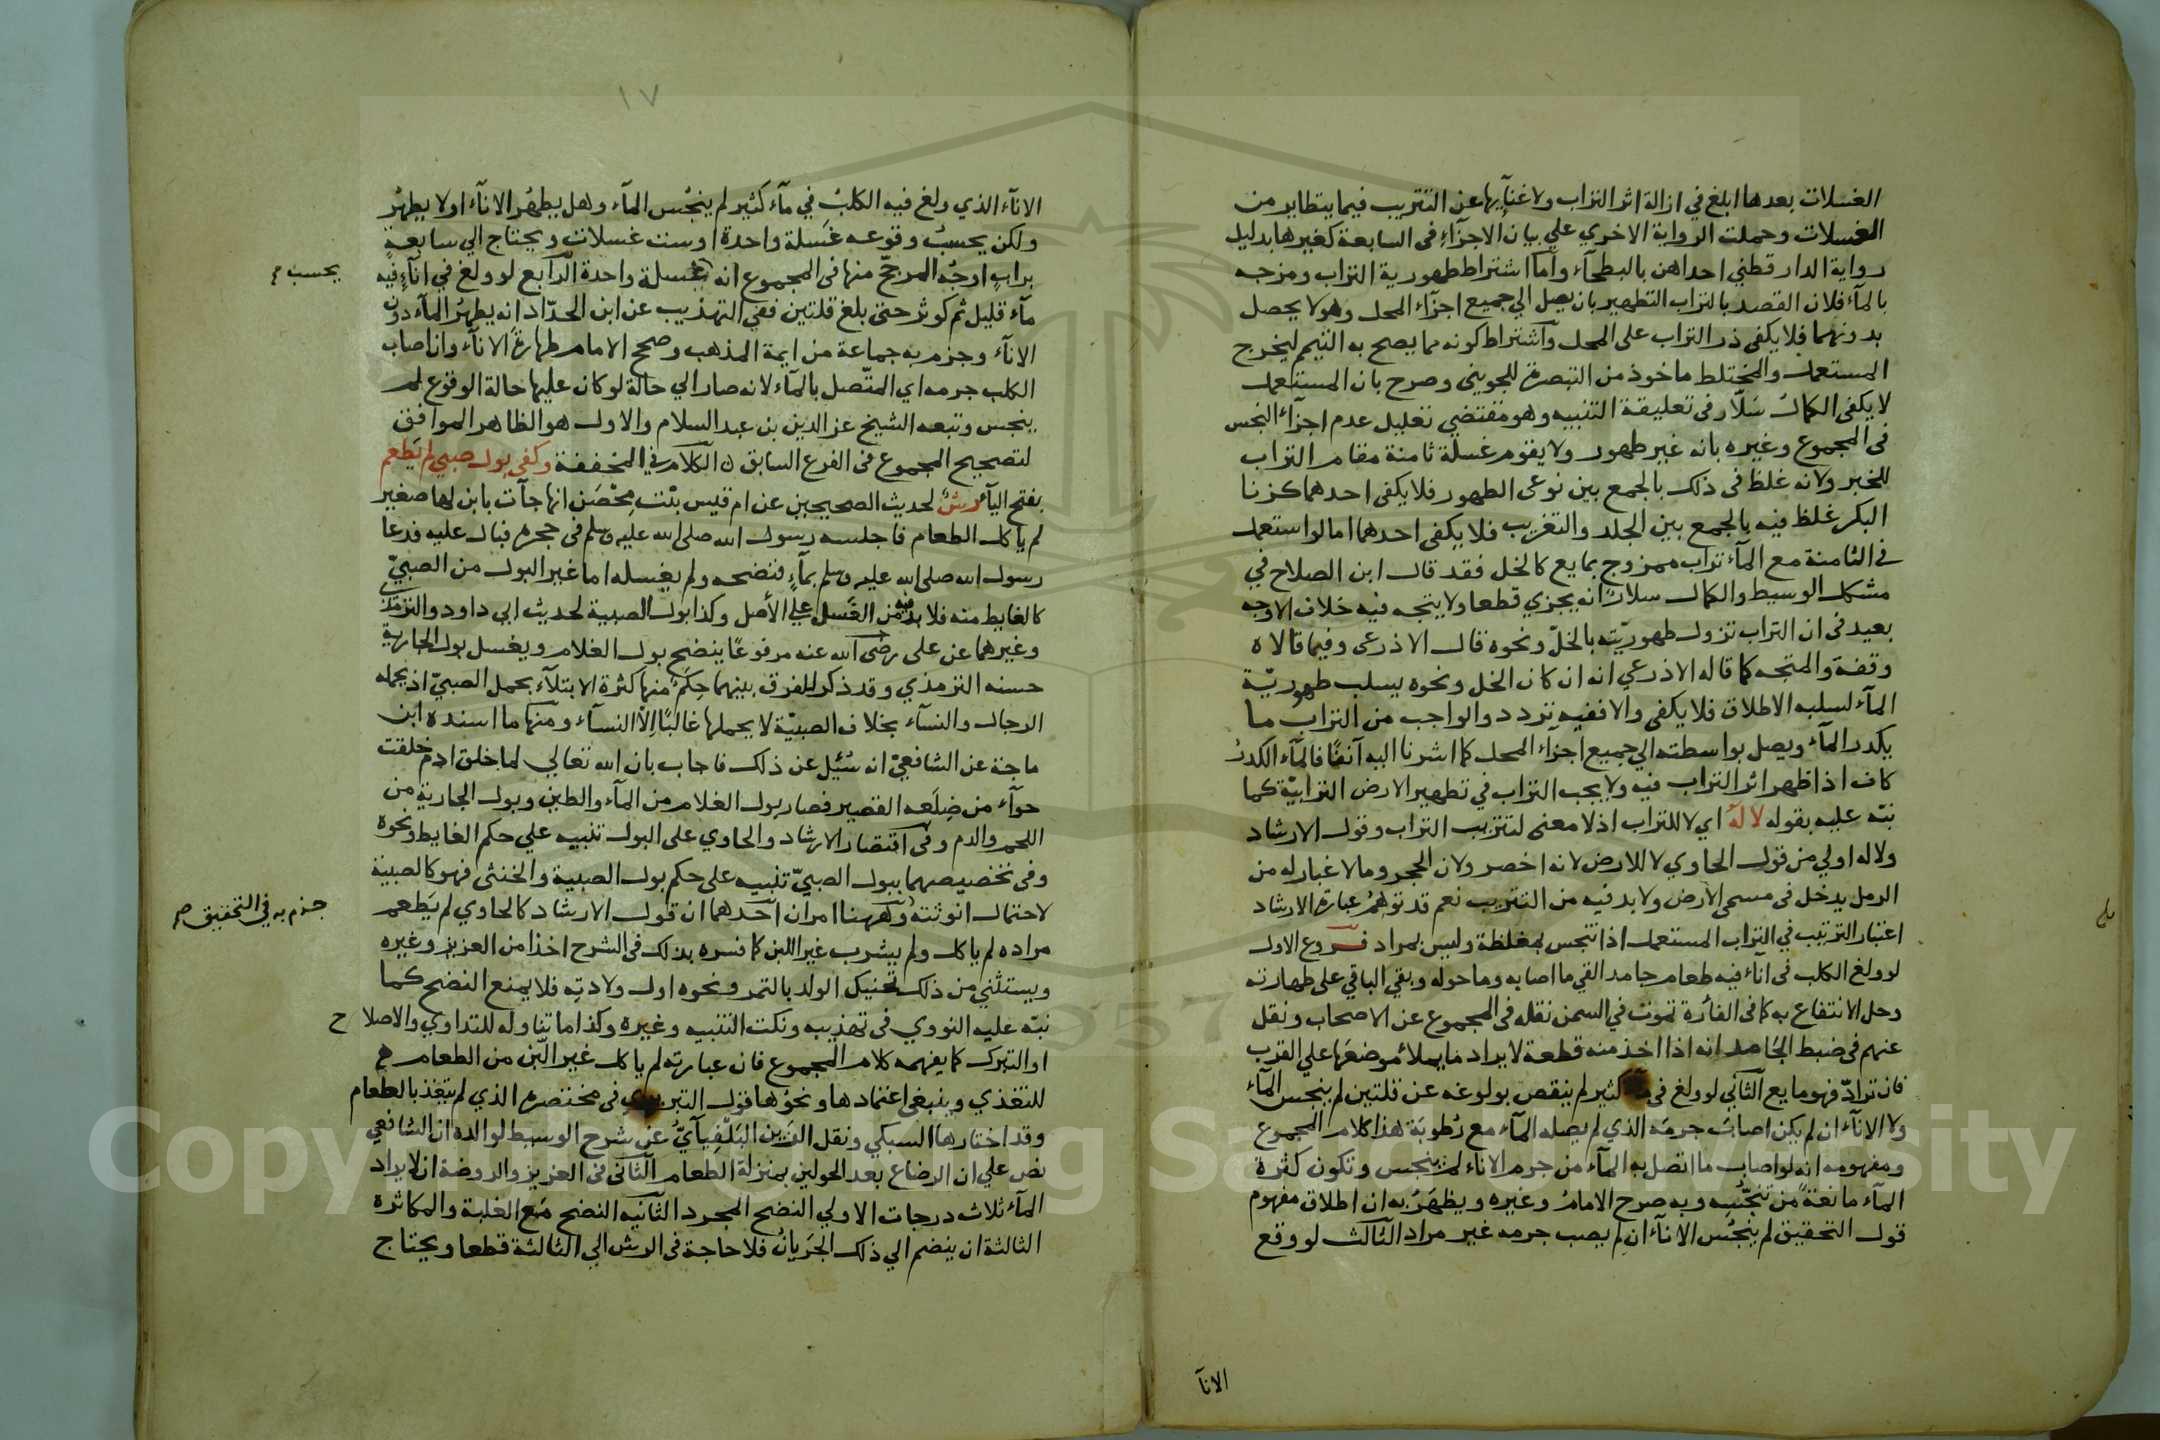 الغسلات بعدها ابلغ في ازالة اثر التراب ولاغنائها عن التتريب فيما يتطاير من
الغسلات وحملت الرواية الاخري علي بيان الاجزاء في السابعة كغيرها بدليل
رواية الدارقطني احداهن بالبطحآء وأما اشتراط طهورية التراب ومزجه
بالمآء فلان القصد بالتراب التطهير بان يصل الي جميع اجزآء المحل وهو لا يحصل
بدونهما فلا يكفي ذر التراب على المحل واشتراط كونه مما يصح به التيمم ليخرج
المستعمل والمختلط ماخوذ من التبصرة للجويني وصرح بان المستعمل
لا يكفي الكمال سلّار في تعليقة التنبيه وهو مقتضي تعليل عدم اجزآء النجس
في المجموع وغيره بانه غير طهور ولا يقوم غسلة ثامنة مقام التراب
للخبر ولانه غلظ في ذلك بالجمع بين نوعى الطهور فلا يكفى احدهما كزنا
البكر غلظ فيه بالجمع بين الجلد والتغريب فلا يكفى احدهما اما لو استعمل
في الثامنة مع المآء تراب ممزوج بمايع كالخل فقد قال ابن الصلاح في
مشكل الوسيط والكمال سلارًا انه يجزي قطعا ولا يتجه فيه خلاف الاوجه
بعيد في ان التراب تزول طهوريّته بالخلّ ونحوه قال الاذرعى وفيما قالاه
وقفة والمتجه كما قاله الاذرعي انه ان كان الخل ونحوه يسلب طهوريّة
المآء لسلبه الاطلاق فلا يكفى والا ففيه تردد والواجب من التراب ما
يكدر المآء ويصل بواسطته الي جميع اجزآء المحل كما اشرنا اليه آنفًا فالمآء الكدرُ
كاف اذا ظهر اثر التراب فيه ولا يجب التراب في تطهير الارض الترابيّة كما
نبّه عليه بقوله لا لهُ اي لا للتراب اذ لا معنى لتتريب التراب وقول الارشاد
ولا له اولي من قول الحاوي لا للارض لانه اخصر ولان الحجر وما لا غبار له من
الرمل يدخل في مسمى الارض ولا بد فيه من التتريب نعم قد توهم عبارة الارشاد
اعتبار الترتيب في التراب المستعمل اذا تنجس بمغلظة وليس بمراد فروع الاول
لو ولغ الكلب في انآء فيه طعام جامد القي ما اصابه وما حوله وبقي الباقي على طهارته
وحل الانتفاع به كما في الفأرة تموت في السمن نقله في المجموع عن الاصحاب ونقل
عنهم في ضبط الجامد انه اذا اخذ منه قطعة لا يراد ما يملأ موضعها علي القرب
فان ترادّ فهو مايع الثاني لو ولغ في كثير لم ينقص بولوغه عن قلتين لم ينجس المآء
ولا الانآء ان لم يكن اصاب جرمَه الذي لم يصله المآء مع رُطوبَة هذا كلام المجموع
ومفهومه انه لو اصاب ما اتصل به المآء من جرم الاناء لم ينجس وتكون كثرة
المآء مانعةً من تنجّسه وبه صرح الامامُ وغيره ويظهَرُ به ان اطلاق مفهوم
قول التحقيق لم ينجُس الانآء ان لم يصب جرمه غير مراد الثالث لو وقع
الانآ
١٧
الانآء الذي ولغ فيه الكلبُ في مآء كثير لم ينجُس المآء وهل يطهُر الانآء اولا يطهرُ
ولكن يحسبُ وقوعه غَسلة واحدة او ست غسلات ويحتاج الي سابعةٍ
بترابٍ اوجُه المرجّح منها في المجموع انه غسلة واحدة الرابع لو ولغ في انآءٍ فيه
يحسب
مآء قليل ثم كوثر حتى بلغ قلتين ففي التهذيب عن ابن الحدّاد انه يطهرُ المآء دون
الانآء وجزم به جماعة من ايمة المذهب وصحح الامام طهارةَ الانآء وان اصاب
الكلب جرمه اي المتّصل بالمآء لانه صار الي حالة لو كان عليها حالة الوقوع لم
ينجس وتبعه الشيخ عز الدين بن عبد السلام والاول هو الظاهر الموافق
لتصحيح المجموع في الفرع السابق الكلام في المخففة وكفى بول صبي لم يَطعم
بفتح اليآء رشٌّ لحديث الصحيحين عن ام قيس بنْت مِحْصَن انها جآت بابن لها صغير
لم ياكل الطعام فاجلسه رسول الله صلى الله عليه وسلم في حجره فبال عليه فدعا
رسول الله صلى الله عليه وسلم بمآءٍ فنضحه ولم يغسله اما غير البول من الصبيّ
كالغايط منه فلا بد فيه من الغَسل علي الأصل وكذا بول الصبية لحديث ابي داود والترمذي
وغيرهما عن على رضى الله عنه مرفوعًا ينضح بول الغلام ويغسل بول الجارية
حسنه الترمذي وقد ذكر للفرق بينهما حِكَمٌ منها كثرة الابتلآء بحمل الصبيّ اذ يحمله
الرجال والنسآء بخلاف الصبيّة لا يحملها غالبًا الّا النسآء ومنها ما اسنده ابن
ماجة عن الشافعيّ انه سُئل عن ذلك فاجاب بان الله تعالي لما خلق ادم خلقت
حوآء من ضِلَعه القصير فصار بول الغلام من المآء والطين وبول الجارية من
اللحم والدم وفي اقتصار الارشاد والحاوي على البول تنبيه علي حكم الغايط ونحوه
وفي تخصيصهما ببول الصبيّ تنبيه على حكم بول الصبية والخنثى فهو كالصبيّة
لاحتمال انوثته وههنا امران احدهما ان قول الارشاد كالحاوي لم يَطعم
جزم به في التحقيق صح
مراده لم ياكل ولم يشرب غير اللبن كما فسره بذلك في الشرح اخذا من العزيز وغيره
ويستثني من ذلك تحنيك الولد بالتمر ونحوه اول ولادته فلا يمنع النضح كما
نبّه عليه النووي في تهذيبه ونكت التنبيه وغيره وكذا ما تناوله للتداوي والاصلاح
او التبرك كما يفهمه كلام المجموع فان عبارته لم ياكل غير اللبن من الطعام
للتغذي وينبغي اعتمادها ونحوُها قول التبريزي في مختصره الذي لم يتغذ بالطعام
وقد اختارها السبكي ونقل الزين البَلْفِيآئيُّ عن شرح الوسيط لوالده ان الشافعي
نص علي ان الرضاع بعد الحولين بمنزلة الطعام الثاني في العزيز والروضة ان لايراد
المآء ثلاث درجات الاولي النضح المجرد الثانية النضح مع الغلبة والمكاثرة
الثالثة ان ينضم الي ذلك الجَرَيانُ فلا حاجة في الرش الي الثالثة قطعا ويحتاج